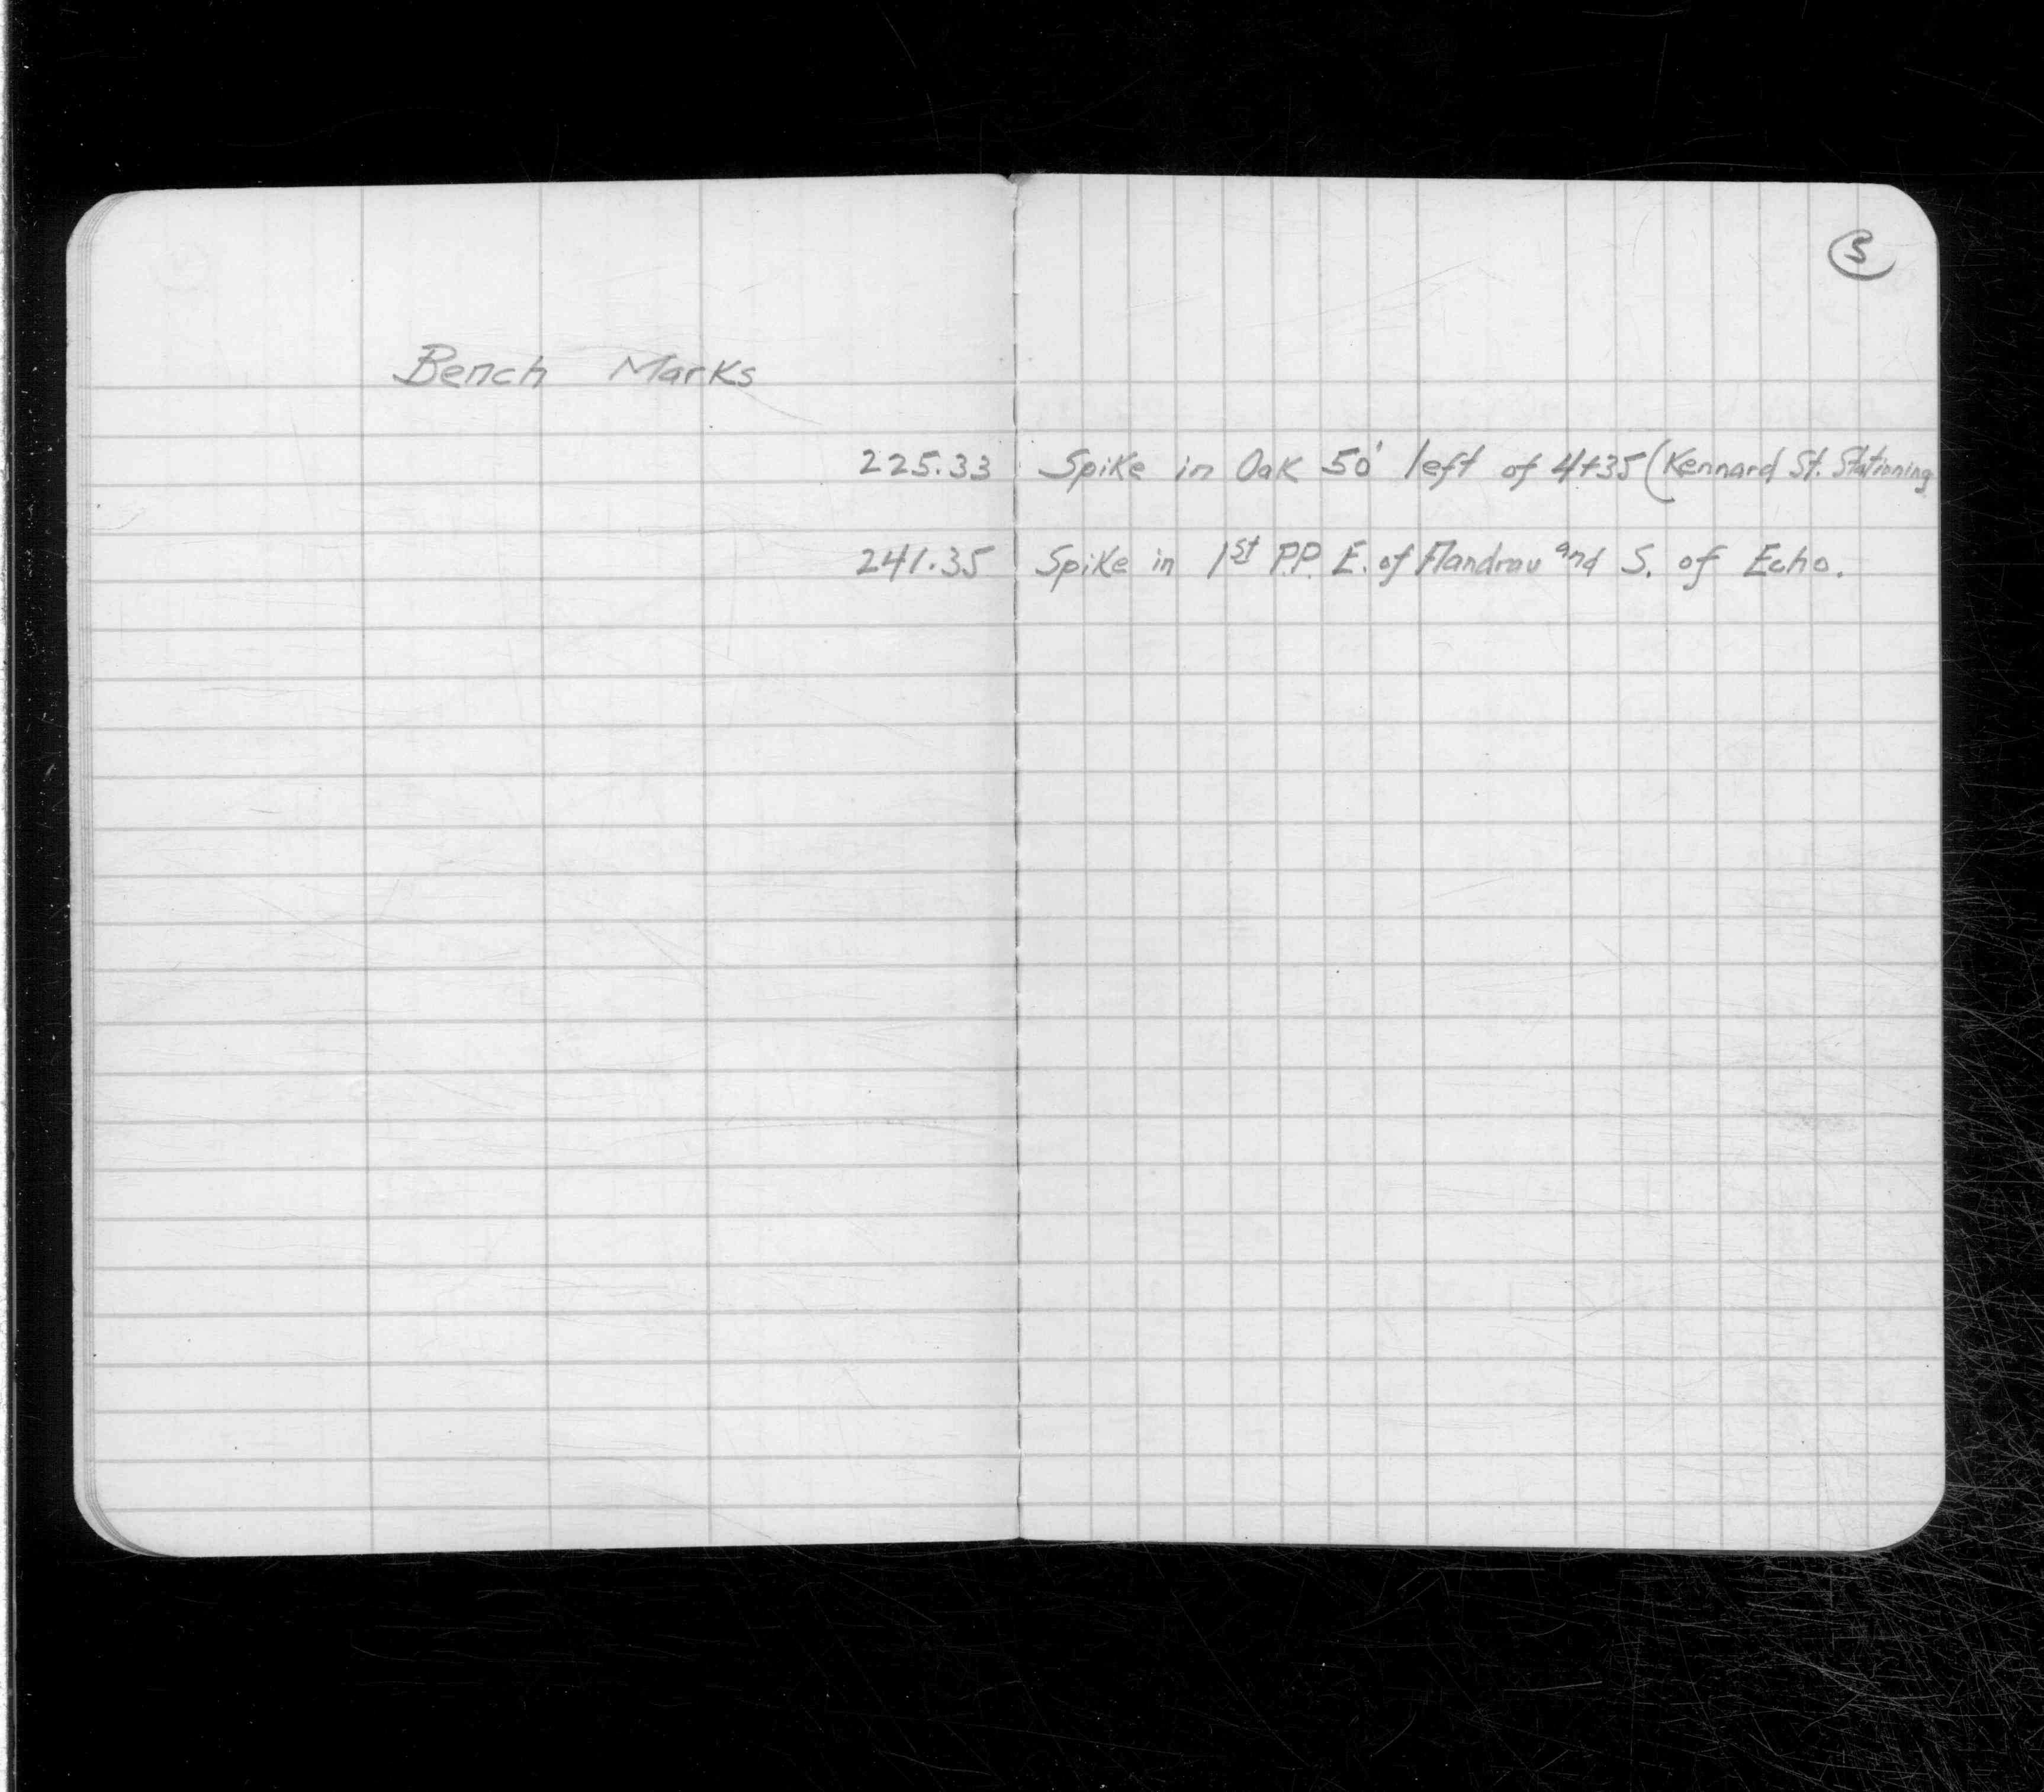 3
Bench Marks
225.33 Spike in Oak 50' left of 4+35 (Kennard St. Stationing
241.35 Spike in 1st P.P. E. of Flandrau and S. of Echo.